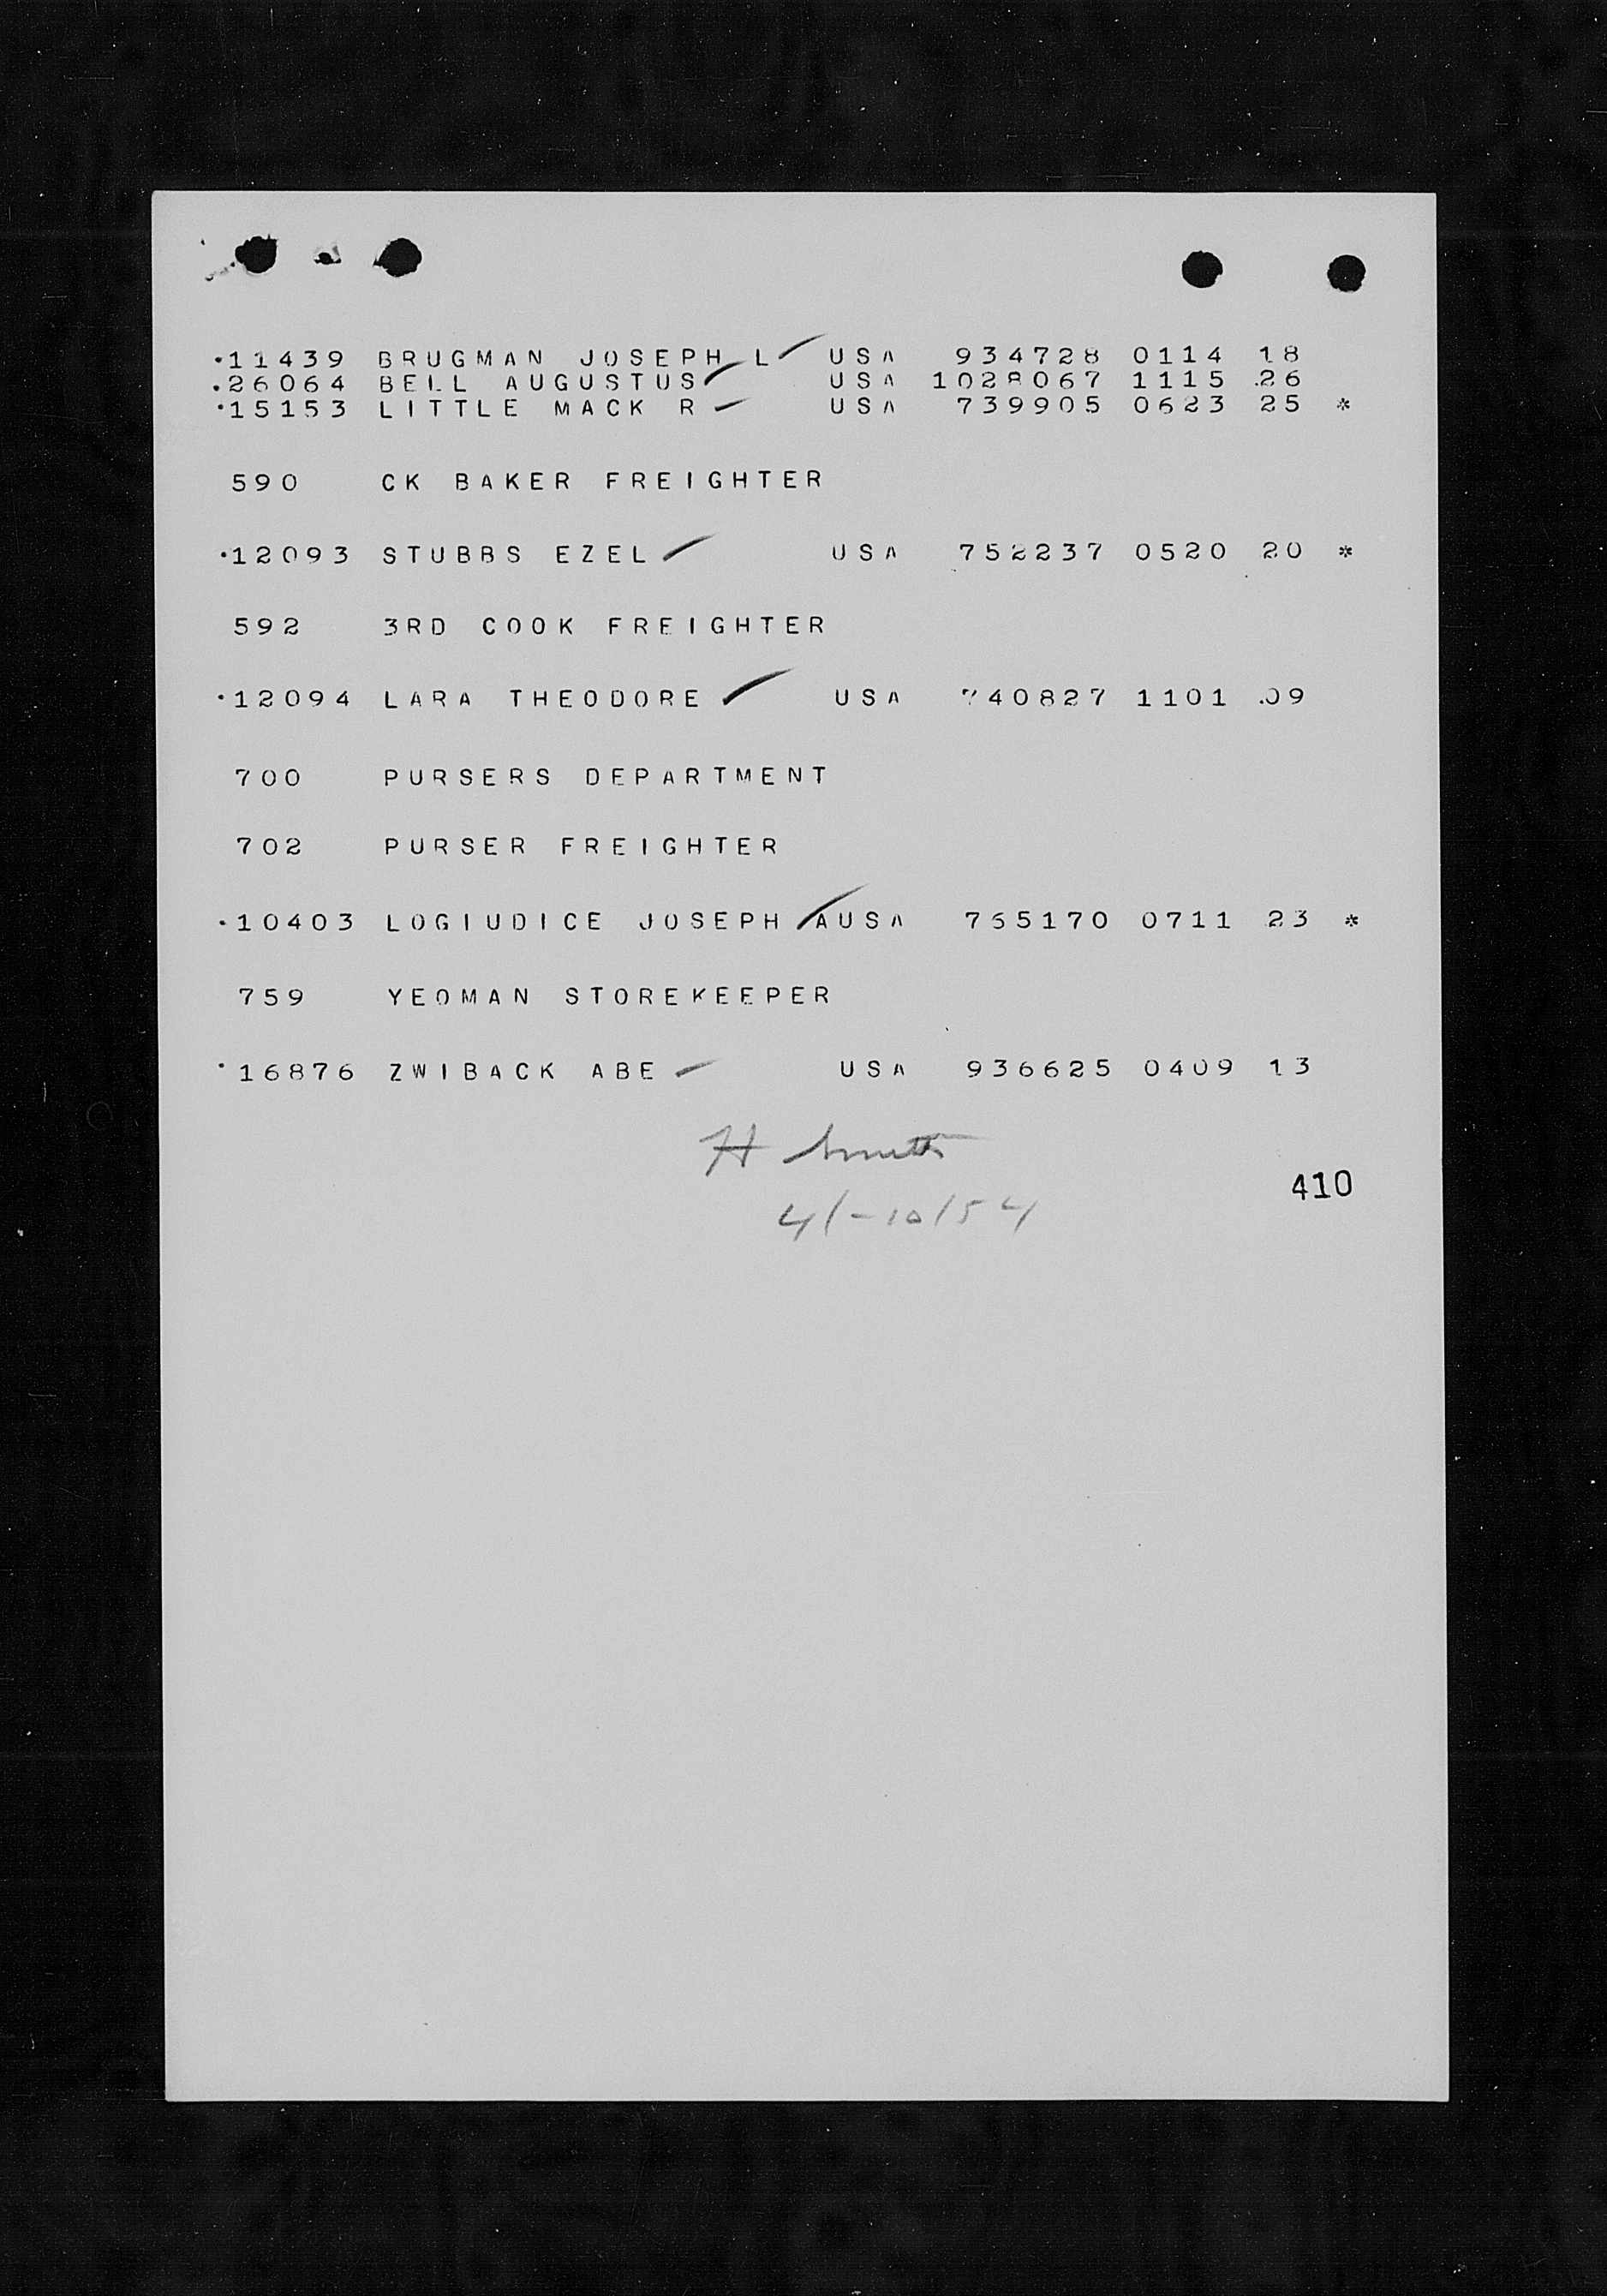 ·11439 BRUGMAN JOSEPH L USA 934728 0114 18
.26064 BELL AUGUSTUS USA 1028067 1115 .26
·15153 LITTLE MACK R USA 739905 0623 25 *
590 CK BAKER FREIGHTER
·12093 STUBBS EZEL USA 752237 0520 20 *
592 3RD COOK FREIGHTER
·12094 LARA THEODORE USA 740827 1101 .09
700 PURSERS DEPARTMENT
702 PURSER FREIGHTER
·10403 LOGIUDICE JOSEPH AUSA 765170 0711 23 *
759 YEOMAN STOREKEEPER
·16876 ZWIBACK ABE USA 936625 0409 13
H Smith
410
4/-10/54